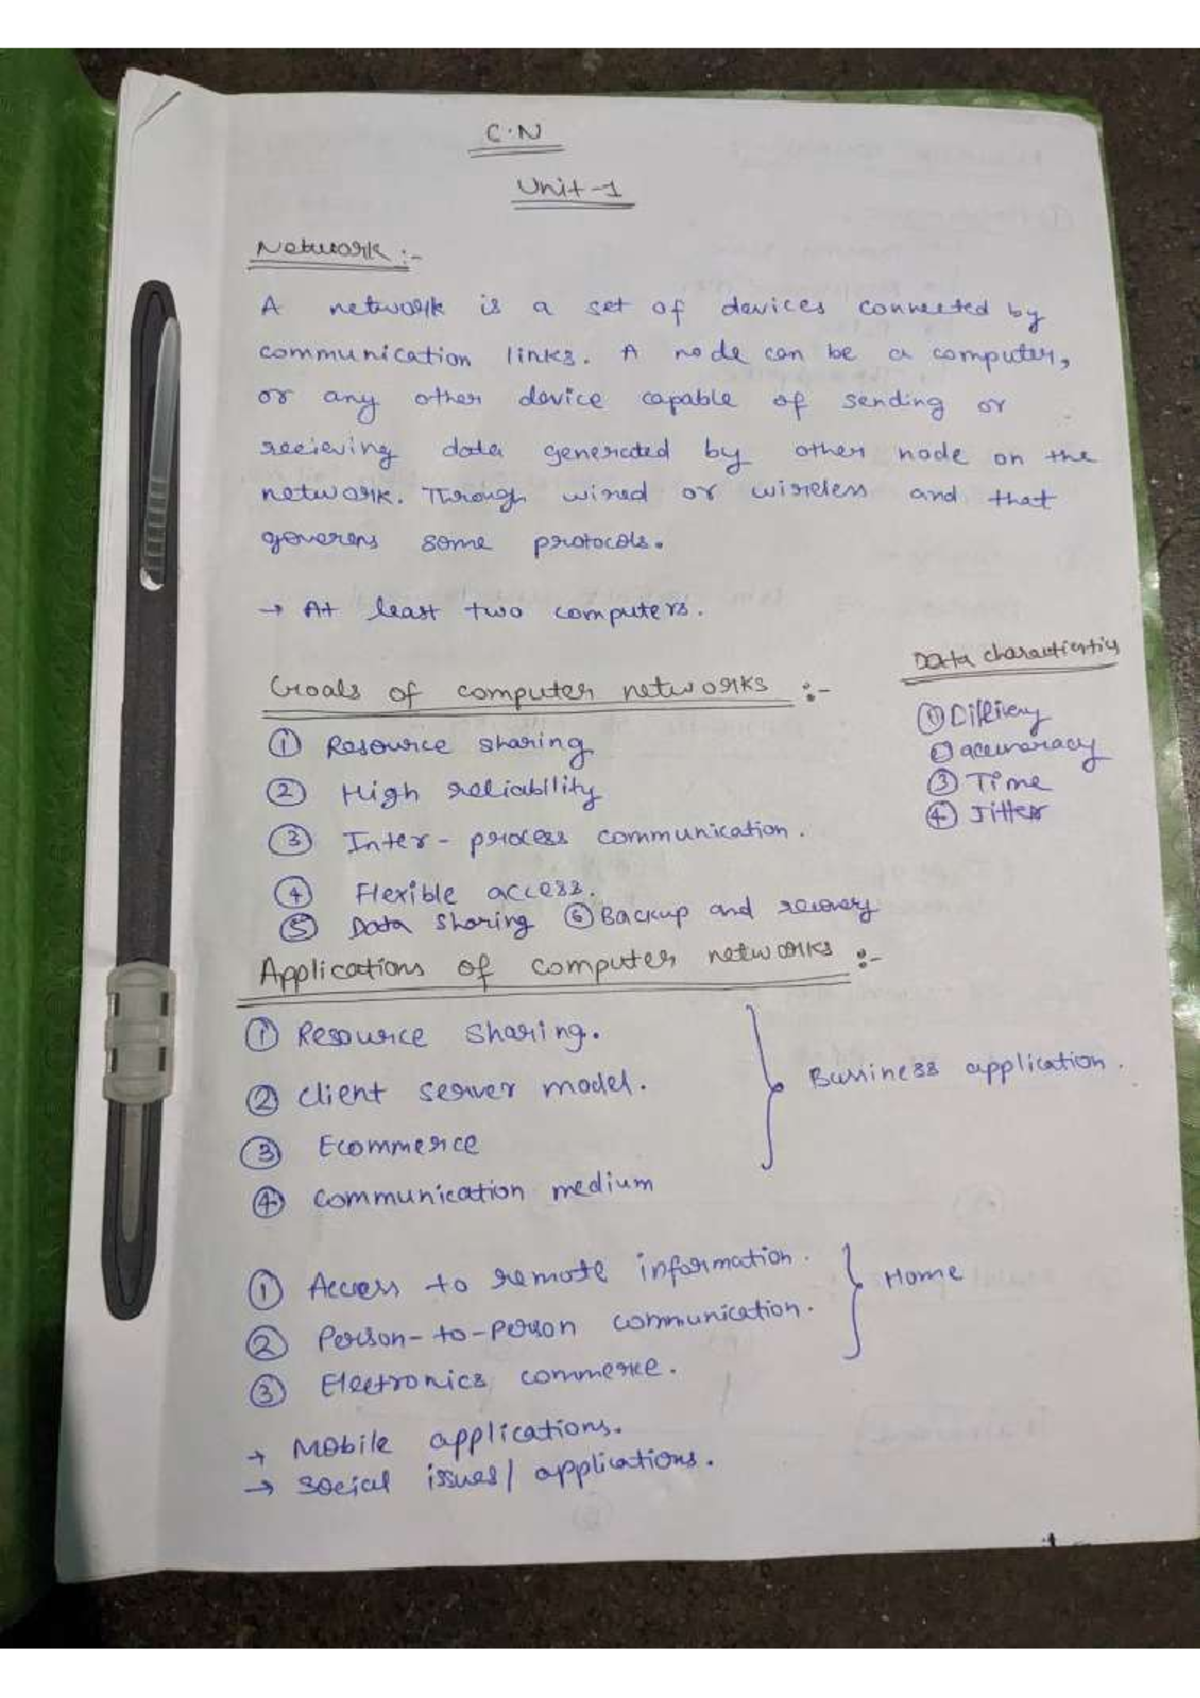 C.N
Unit-1
Network :-
A network is a set of devices connected by
communication links. A node can be a computer,
or any other device capable of sending or
recieving data generated by other node on the
network. Through wired or wireless and that
goverens some protocols.
→ At least two computers.
Data charactiertics
Goals of computer networks :-
① Resource sharing
② High reliability
③ Inter-process communication.
④ Flexible access.
⑤ Data sharing ⑥ Backup and recovery
① Dilivery
② accuraracy
③ Time
④ Jitter
Applications of computer networks :-
① Resource sharing.
② Client server model.
③ Ecommerce
④ communication medium
Bussiness application.
① Access to remote information.
② Person-to-person communication.
③ Electronics commerce.
Home
→ Mobile applications.
→ Social issues/applications.